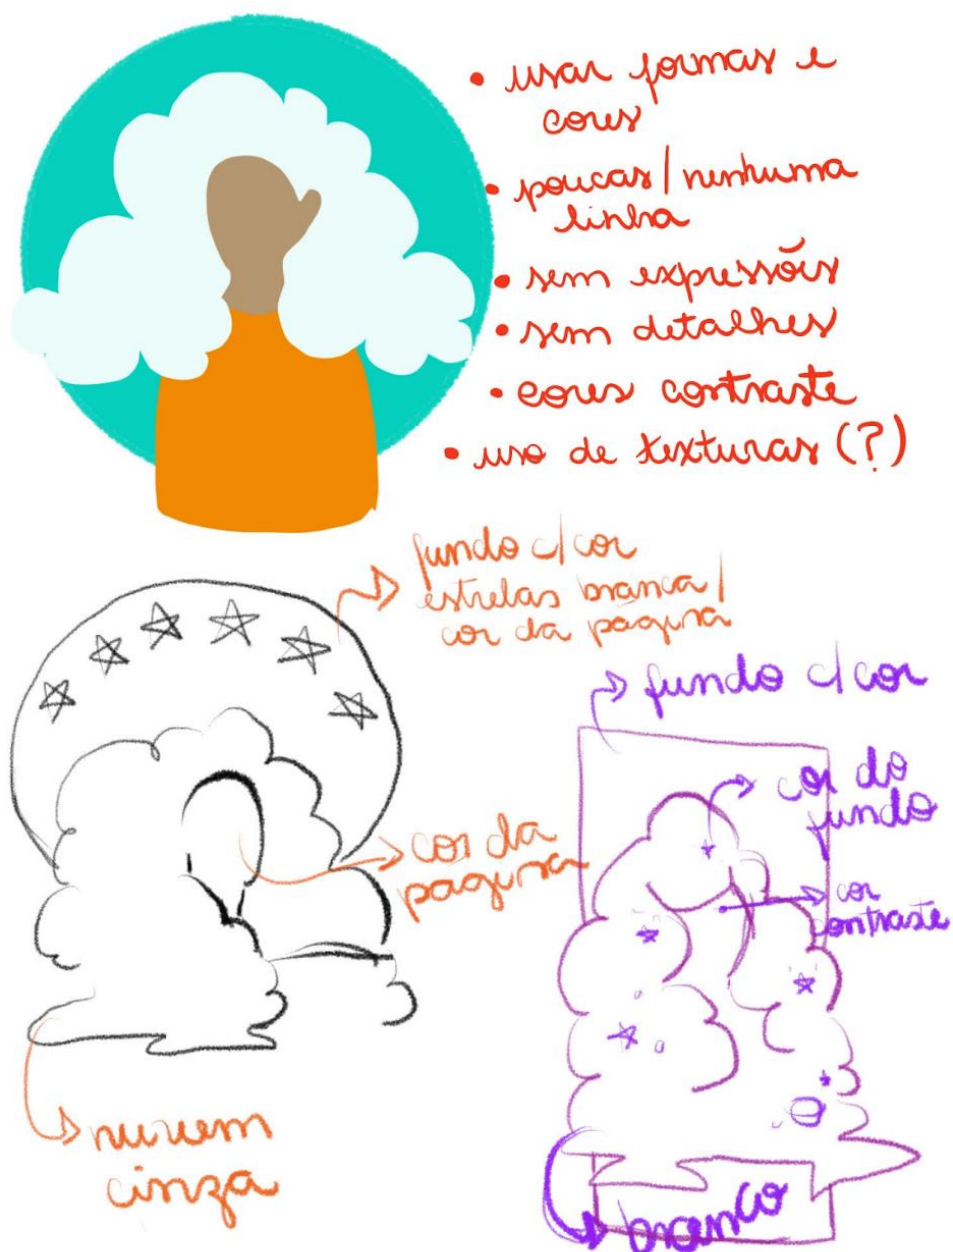 • usar formas e
cores
• poucas/nenhuma
linha
• sem expressões
• sem detalhes
• cores contraste
• uso de texturas (?)
fundo c/ cor
estrelas branca/
cor da página
fundo c/ cor
cor do
fundo
cor da
pagina
cor
contraste
nuvem
cinza
branco